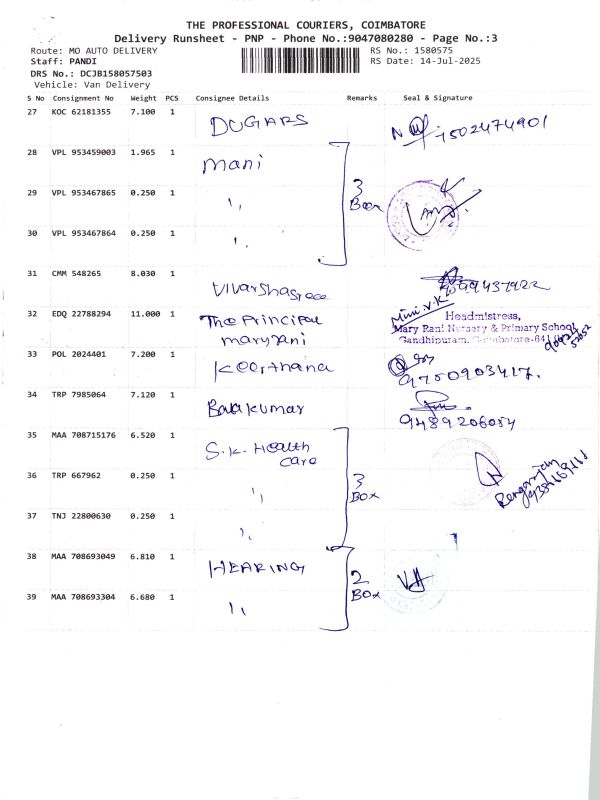 THE PROFESSIONAL COURIERS, COIMBATORE
Delivery Runsheet - PNP - Phone No.:9047080280 - Page No.:3
Route: MO AUTO DELIVERY RS No.: 1580575
Staff: PANDI RS Date: 14-Jul-2025
DRS No.: DCJB158057503
Vehicle: Van Delivery
S No Consignment No Weight PCS Consignee Details Remarks Seal & Signature
27 KOC 62181355 7.100 1 DUGARS 7502474901
28 VPL 953459003 1.965 1 Mani
29 VPL 953467865 0.250 1 ,, 3 Box
30 VPL 953467864 0.250 1 ,,
31 CMM 548265 8.030 1
32 EDQ 22788294 11.000 1 The Principal maryrani Mini.V.K Headmistress,
Mary Rani Nursery & Primary School
Gandhipuram, Coimbatore-641
33 POL 2024401 7.200 1 Keerthana 9750903417.
34 TRP 7985064 7.120 1 Balakumar 9489206054
35 MAA 708715176 6.520 1 S.K. Health care
36 TRP 667962 0.250 1 ,, 3 Box
37 TNJ 22800630 0.250 1 ,,
38 MAA 708693049 6.810 1 HEARING 2 Box
39 MAA 708693304 6.680 1 ,,